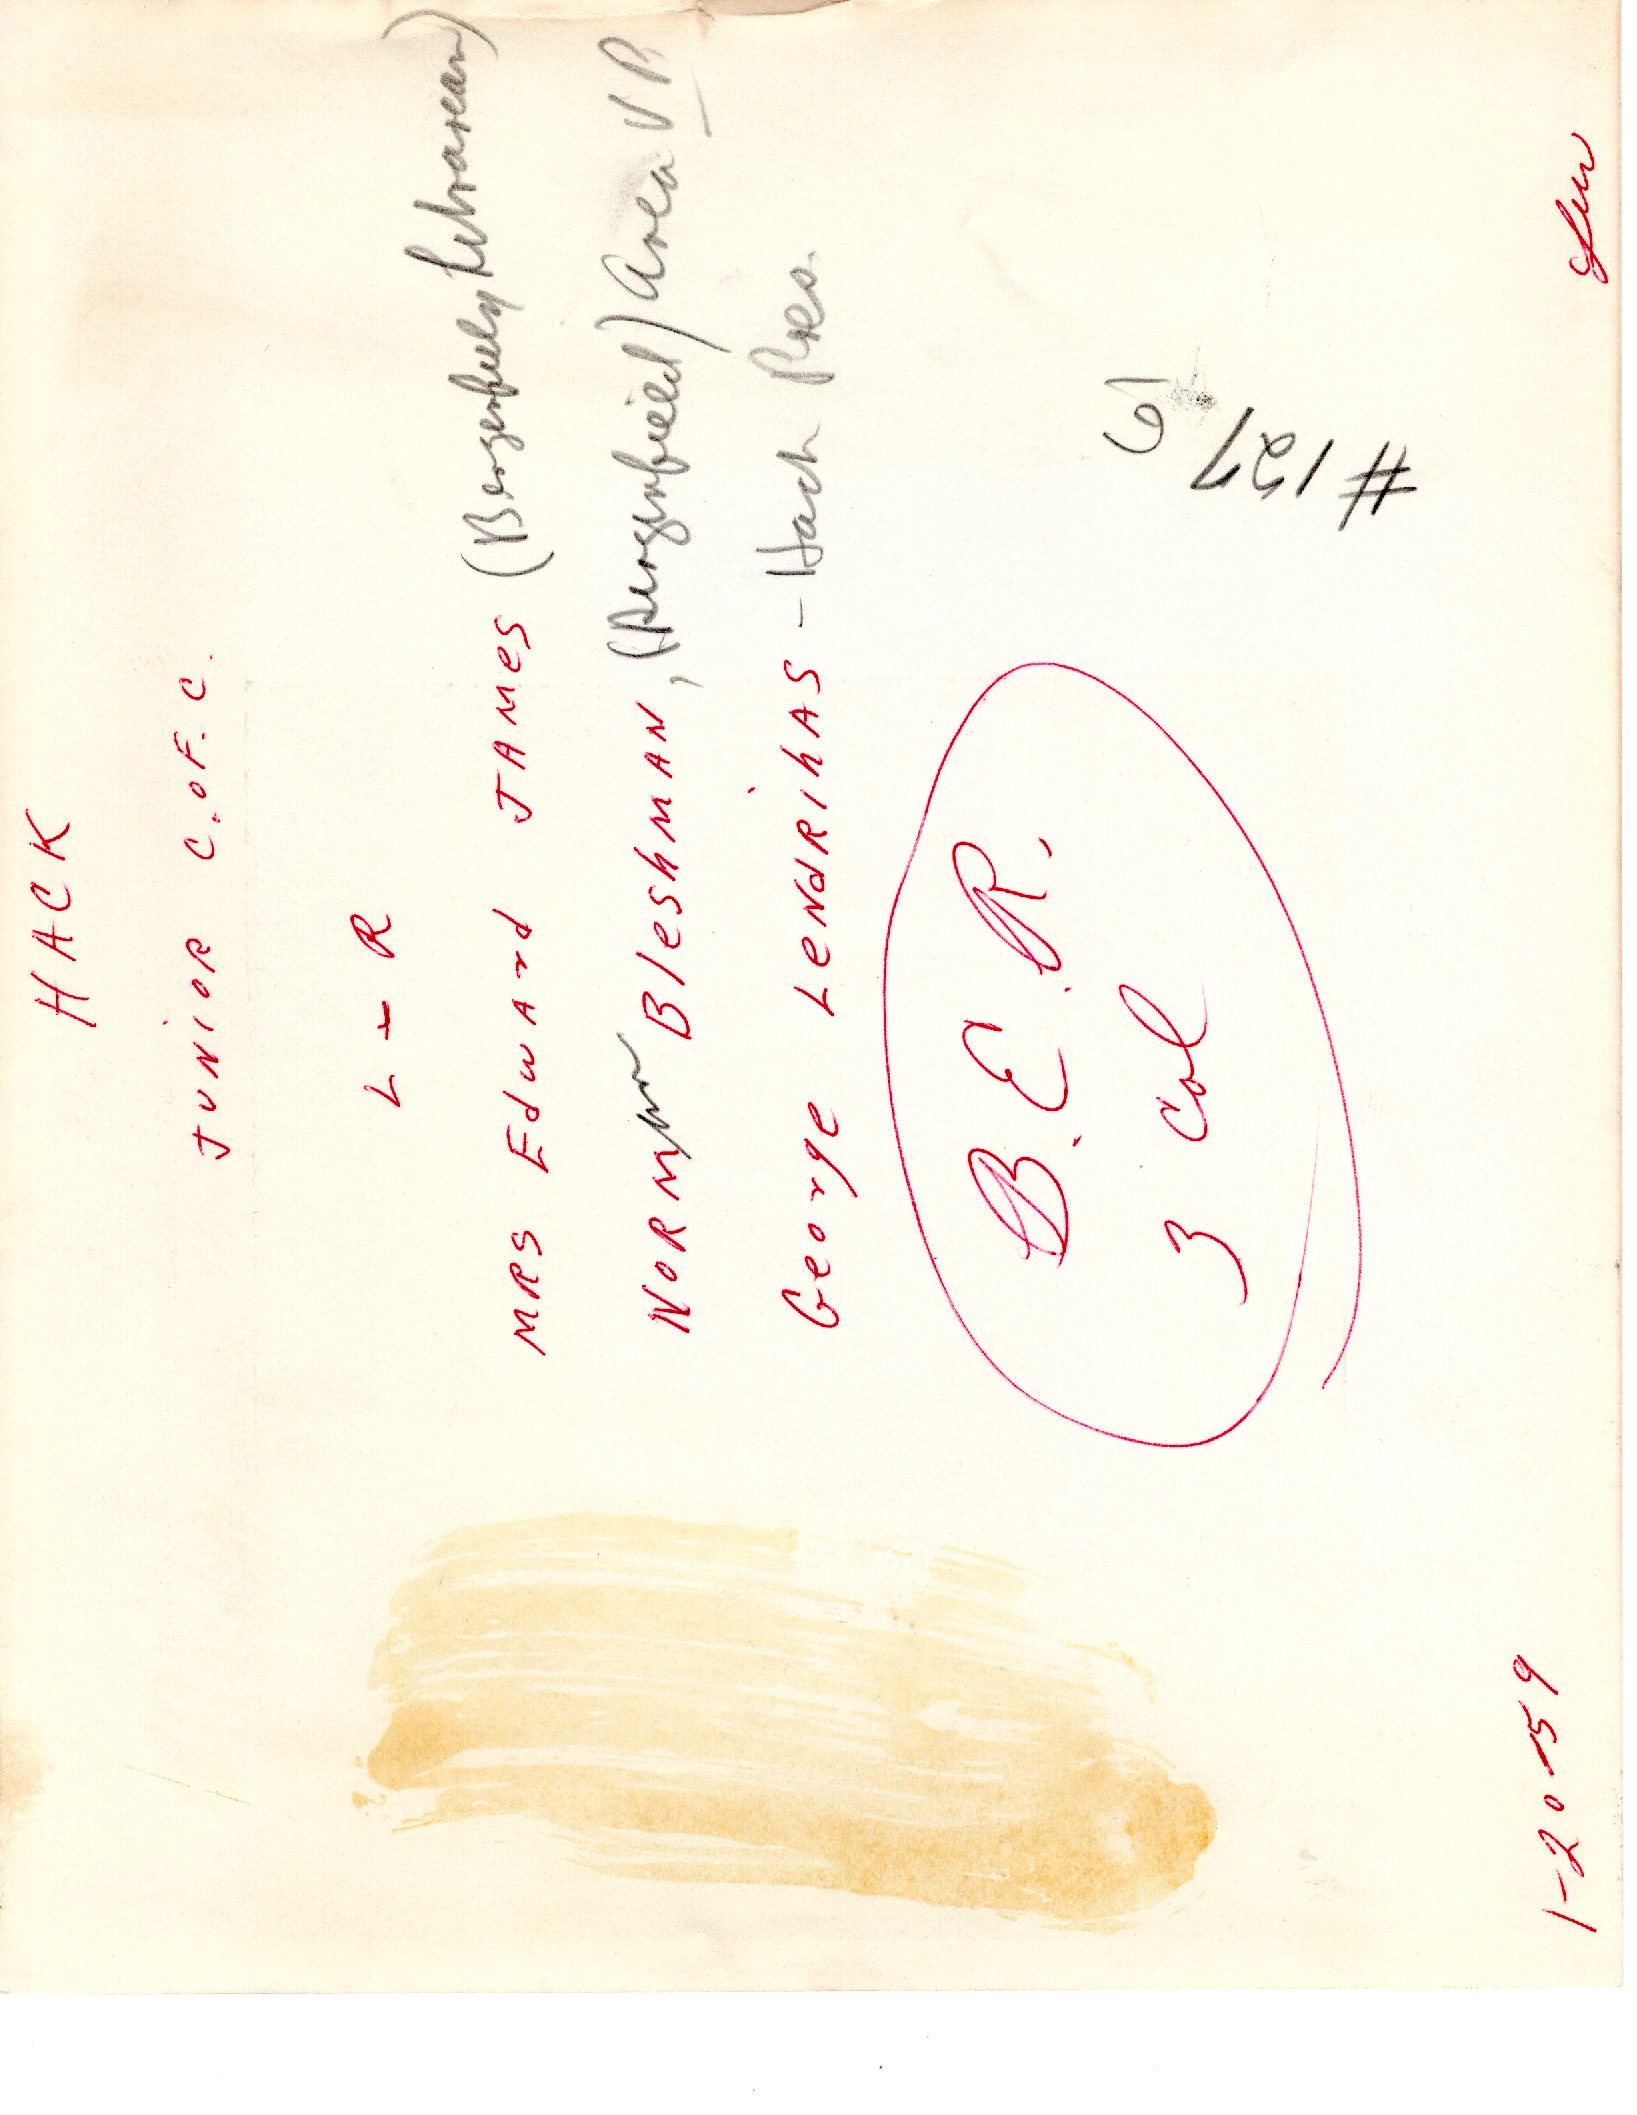 HACK
JUNIOR C. OF. C.
L - R
MRS Edward JAMES (Bergenfield Librarian)
NORMAN BleshMAN, (Bergenfield) Area VP
George LeNdRihAS - Hack Pres.
B. E. R.
3 Col
#127
1-20-59